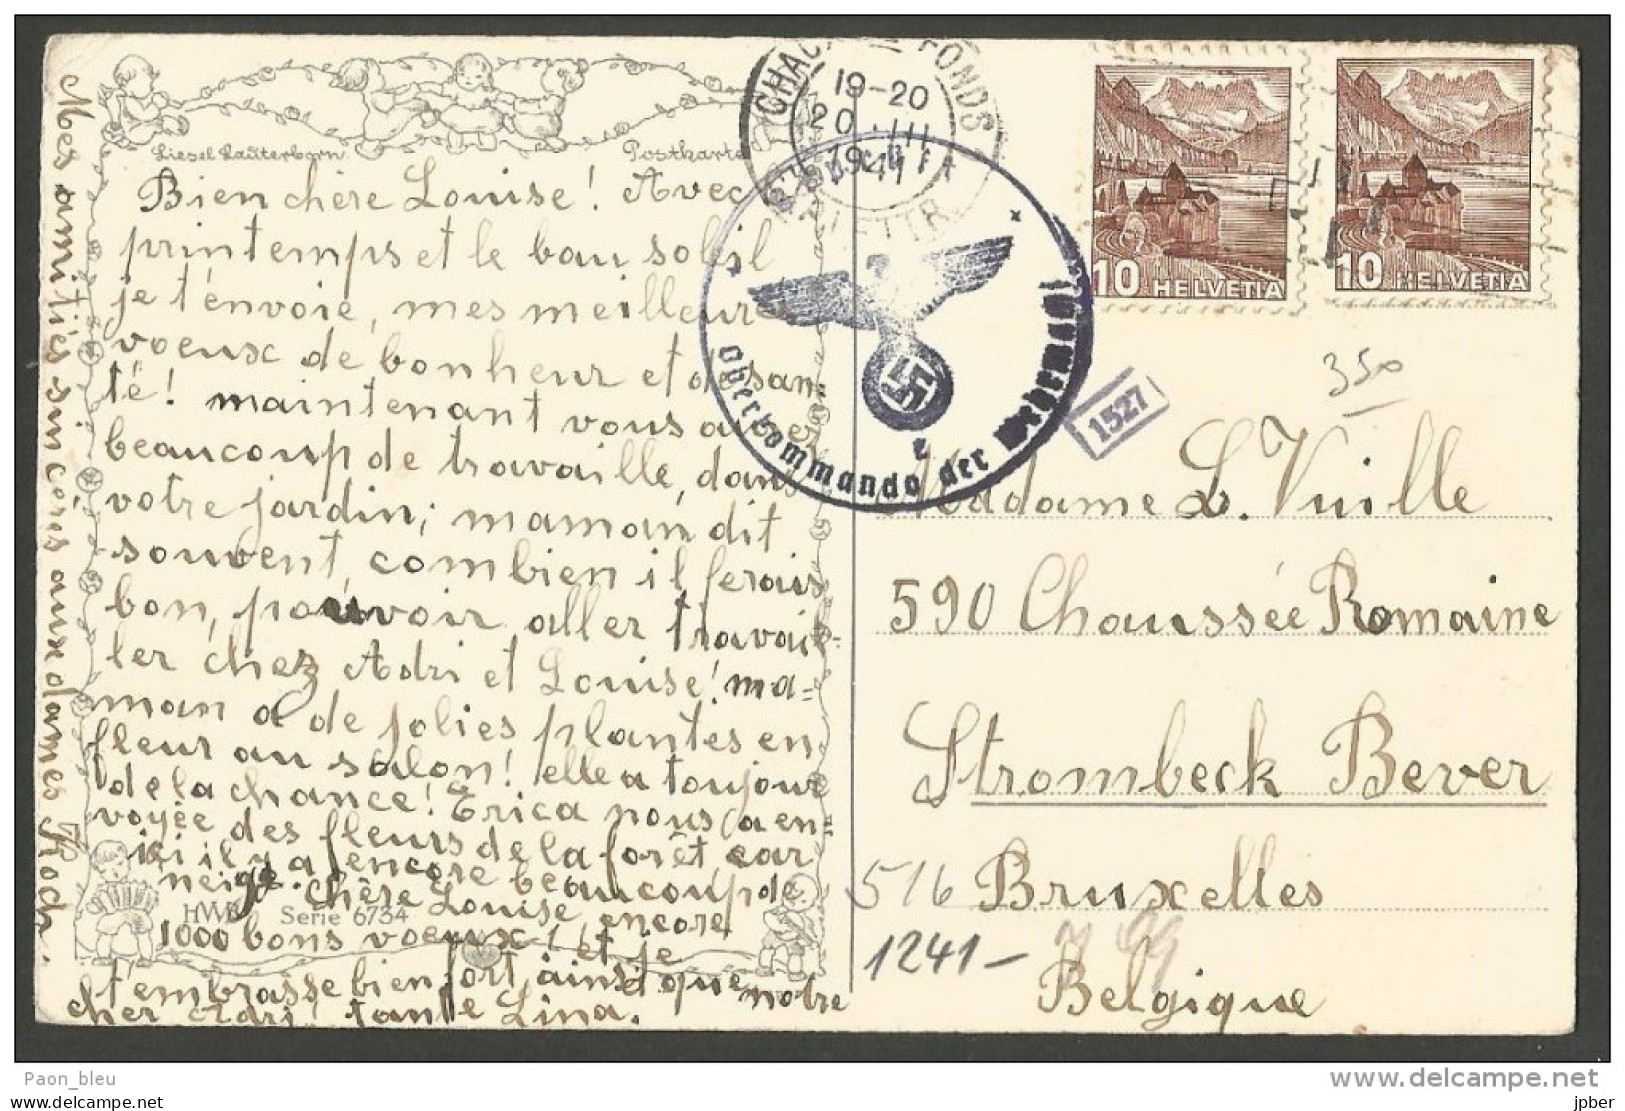 Liesel Lauterborn
Postkarte
Bien chère Louise! Avec
printemps et le bau soleil
je t'envoie, mes meilleurs
voeux de bonheur et de san
té! maintenant vous avez
beaucoup de travaille, dans
votre jardin; maman dit
souvent, combien il ferais
bon, pouvoir aller travail-
ler chez Adri et Louise! ma=
man a de jolies plantes en
fleur au salon! elle a toujours
de la chance! Erica nous a en=
voyée des fleurs de la forêt car
ici il y a encore beaucoup de
neige. Chère Louise encore
HWB Serie 6734
1000 bons voeux! et je
t'embrasse bien fort, ainsi que notre
cher Adri! tante Lina.
Mes amitiés sincères aux dames Koch.
CHAUX-DE-FONDS
19-20
20.III
1941
LETTR
Oberkommando der Wehrmacht
e
1527
10 HELVETIA
10 HELVETIA
350
Madame L. Vuille
590 Chaussée Romaine
Strombeck Bever
516 Bruxelles
1241-
Belgique
Paon_bleu
www.delcampe.net
jpber